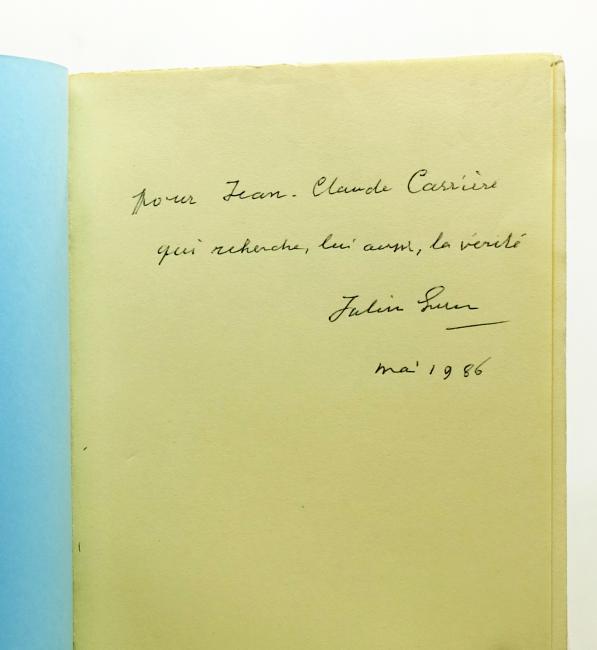 pour Jean-Claude Carrière
qui recherche, lui aussi, la vérité
Julien Green
mai 1986